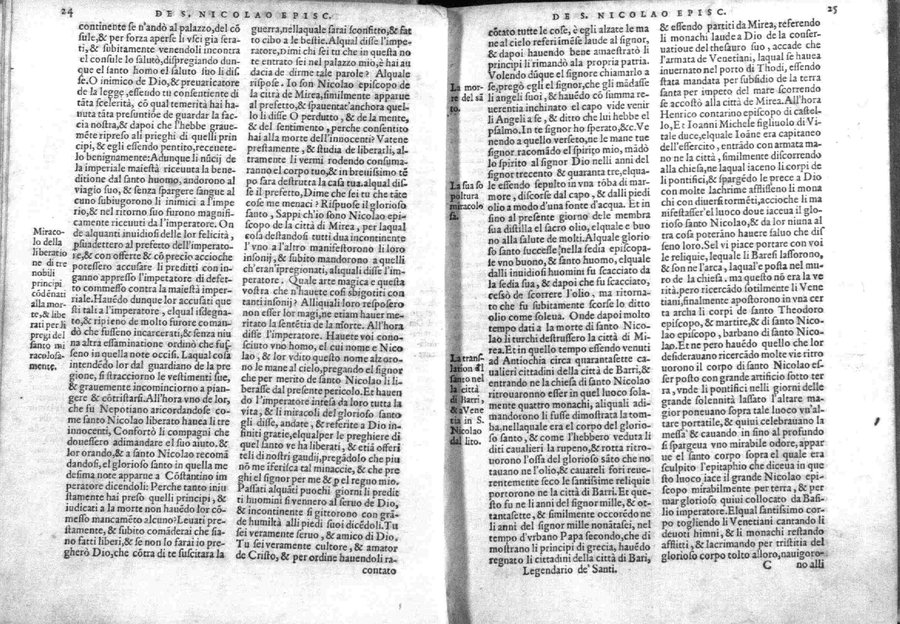 24
DE S. NICOLAO EPISC.
continente se n'andò al palazzo, del cõ
sule, & per forza aperse li vsci gia serra-
ti, & subitamente venendoli incontra
el consule lo salutò, dispregiando dunq;
que el santo homo el saluto suo li dis-
se. O inimico de Dio, & preuaricatore
de la legge, essendo tu consentiente di
tãta scelerità, cõ qual temerità hai ha
uuta tãta presuntiõe de guardar la fac-
cia nostra, & dapoi che l'hebbe graue-
mẽte ripreso ali prieghi di quelli prin
cipi, & egli essendo pentito, receuete-
lo benignamente: Adunque li nũcij de
la imperiale maiestà riceuuta la bene-
dittione dal santo huomo, andorono al
viagio suo, & senza spargere sangue al
cuno subiugorono li inimici a l'impe
rio, & nel ritorno suo furono magnifi-
camente riceuuti da l'imperatore. On
de alquanti inuidiosi delle lor felicità,
psuadettero al prefetto dell'imperato-
re, & con offerte & cõ precio accioche
potessero accusare li preditti con in-
ganno appresso l'imperatore di defet-
to commesso contra la maiestà imper-
riale. Hauẽdo dunque lor accusati que
sti tali a l'imperatore, elqual isdegna-
to, & ripieno de molto furore coman-
dò che fusseno incarcerati, & senza niu
na altra essaminatione ordinò che fus-
seno in quella note occisi. Laqual cosa
intendẽdo lor dal guardiano de la pre
gione, si stracciorno le vestimenti sue,
& grauemente incominciorno a pian-
gere & cõtristarsi. All'hora vno de lor,
che fu Nepotiano aricordandose co-
me santo Nicolao liberato hanea li tre
innocenti, Confortò li compagni che
douessero adimandare il suo aiuto, &
lor orando, & a santo Nicolao recomã
dandosi, el glorioso santo in quella me
desima note apparue a Cõstantino im
peratore dicendoli: Perche tanto iniu
stamente hai preso quelli principi, &
iudicati a la morte non hauẽdo lor cõ
messo mancamẽto alcuno? Leuati pre-
stamente, & subito comãderai che sia-
no fatti liberi, & se non lo farai io pre
gherò Dio, che cõtra di te suscitara la
Miraco-
lo della
liberatio
ne di tre
nobili
principi
cõdẽnati
alla mor-
te, & libe
rati per li
pregi del
santo mi
racolosa-
mente.
guerra, nellaquale sarai sconfitto, & fat
to cibo a le bestie. Alqual disse l'impe-
ratore, Dimi chi sei tu che in questa no
te entrato sei nel palazzo mio, è hai au
dacia de dirme tale parole? Alquale
rispose. Io son Nicolao episcopo de
la città de Mirea, similmente apparue
al prefetto, & spauentat'anchora quel-
lo li disse. O perduto, & de la mente,
& del sentimento, perche consentito
hai alla morte dell'innocenti? Vatene
prestamente, & studia de liberarli, al-
tramente li vermi rodendo consuma-
ranno el corpo tuo, & in breuissimo tẽ
po sara destrutta la casa tua. alqual dis-
se el prefetto, Dime che sei tu che tãte
cose me menaci? Rispuose il glorioso
santo, Sappi ch'io sono Nicolao epi-
scopo de la città di Mirea, per laqual
cosa destandosi tutti dua incontinente
l'vno a l'altro manifestorono li loro
insonij, & subito mandorono a quelli
ch'eran ipregionati, aliquali disse l'im-
peratore, Quale arte magica e questa
vostra che n'hauete cosi sbigotiti con
tanti insonij? Alliquali loro resposero
non esser lor magi, ne etiam hauer me-
ritato la sentẽtia de la morte. All'hora
disse l'imperatore. Hauete voi cono-
sciuto vno homo, el cui nome e Nico
lao, & lor vdito questo nome alzoro-
no le mane al cielo, pregando el signor
che per merito de santo Nicolao li li-
berasse dal presente pericolo. Et hauen
do l'imperatore intesa da loro tutta la
vita, & li miracoli del glorioso santo
gli disse, andate, & referite a Dio in-
finiti gratie, elqualper le preghiere di
quel santo ve ha liberati, & etiã offerì
teli di nostri gaudij, pregãdolo che piu
nõ me iferisca tal minaccie, & che pre
ghi el signor per me & p el regno mio.
Passati alquãti puochi giorni li predit
ti huomini si vennero al seruo de Dio,
& incontinente si gittorono con grã-
de humiltà alli piedi suoi dicẽdoli. Tu
sei veramente seruo, & amico di Dio.
Tu sei veramente cultore, & amator
de Cristo, & per ordine hauendoli ra-
contato
25
DE S. NICOLAO EPISC.
cõtato tutte le cose, è egli alzate le ma
ne al cielo referì imẽse laude al signor,
& dapoi hauendo bene amaestratò li
principi li rimandò ala propria patria.
Volendo dũque el signore chiamarlo a
se, pregò egli el signor, che gli mãdasse
li angeli suoi, & hauẽdo cõ summa re-
uerentia inchinato el capo vide venir
li Angeli a se, & ditto che lui hebbe el
psalmo. In te signor ho sperato, &c. Ve
nendo a quello verseto, ne le mane tue
signor racomãdo el spirito mio, mãdò
lo spirito al signor Dio nelli anni del
signor trecento & quaranta tre, elqua-
le essendo sepulto in vna tõba di mar-
more, discorse dal capo, & dalli piedi
olio a modo d'una fonte d'acqua. Et in
sino al presente giorno dele membra
sua distilla el sacro olio, elquale e buo
no alla salute de molti. Alquale glorio
so santo successe nella sedia episcopa-
le vno buono, & santo huomo, elquale
dalli inuidiosi huomini fu scacciato da
la sedia sua, & dapoi che fu scacciato,
cessò de scorrere l'olio, ma ritorna-
to che fu subitamente scorse lo ditto
olio come soleua. Onde dapoi molto
tempo dati a la morte di santo Nicol-
lao li turchi destrussero la città di Mi-
rea. Et in quello tempo essendo venuti
ad Antiochia circa quarantasette ca-
ualieri cittadini della città de Barri, &
entrando ne la chiesa di santo Nicolao
ritrouaronno esser in quel luoco sola-
mente quattro monachi, aliquali adi-
mandorono li fusse dimostrata la tom-
ba, nellaquale era el corpo del glorio-
so santo, & come l'hebbero veduta li
diti caualieri la rupeno, & rotta ritro-
uorono l'ossa del glorioso sãto che no
tauano ne l'olio, & cauateli fori reue-
rentemente seco le santissime reliquie
portorono ne la città di Barri. Et que-
sto fu ne li anni del signor mille, & ot-
tantasette, & similmente occoredò ne
li anni del signor mille nonãtasei, nel
tempo d'vrbano Papa secondo, che di
mostrano li principi di grecia, hauẽdo
regnato li cittadini della città di Bari,
Legendario de' Santi.
La mor-
te del sã
to.
La sua so
poltura
miracolo
sa.
La trans-
lation dl
santo nel
la città
di Barri,
& a Vene
tia in S.
Nicolao
dal lito.
& essendo partiti da Mirea, referendo
li monachi laude a Dio de la conser-
uatione del thesauro suo, accade che
l'armata de Venetiani, laqual se hauea
inuernato nel porto di Thodi, essendo
stata mandata per subsidio de la terra
santa per impeto del mare scorrendo
se accostò alla città de Mirea. All'hora
Henrico contarino episcopo di castel-
lo, Et Ioanni Michele figliuolo di Vi-
tale duce, elquale Ioãne era capitaneo
dell'essercito, entrãdo con armata ma-
no ne la città, similmente discorrendo
alla chiesa, ne laqual iaceno li corpi de
li pontifici, & spargẽdo le prece a Dio
con molte lachrime afflisseno li mona
chi con diuersi tormẽti, accioche li ma
nifestasser'el luoco doue iaceua il glorio
so santo Nicolao, & da lor niuna al
tra cosa poterãno hauere saluo che dis
seno loro. Sel vi piace portare con voi
le reliquie, lequale li Baresi lassorono,
& son ne l'arca, laqual'e posta nel mu-
ro de la chiesa, ma questo nõ era la ve
rità, pero ricercãdo sotilmente li Vene
tiani, finalmente apostorono in vna cer
ta archa li corpi de santo Theodoro
episcopo, & martire, & di santo Nico-
lao episcopo, barbano di santo Nico-
lao. Et ne pero hauẽdo quello che lor
desiderauano ricercãdo molte vie ritro
uorono il corpo di santo Nicolao es-
ser posto con grande artificio sotto ter
ra, vnde li pontifici nelli giorni delle
grande solennità lassato l'altare ma-
gior poneuano sopra tale luoco vn'al-
tare portatile, & quiui celebrauano la
messa & cauando in sino al profundo
si spargeua vno mirabile odore, appar
ue el santo corpo sopra el quale era
sculpito l'epitaphio che diceua in que
sto luoco iace il grande Nicolao epi-
scopo mirabilmente per terra, & per
mar glorioso quiui collocato da Basi-
lio imperatore. Elqual santissimo cor-
po togliendo li Venetiani cantando li
deuoti himni, & li monachi restando
afflitti, & lacrimando per tristitia del
glorioso corpo tolto a loro, nauigoro-
C no alli